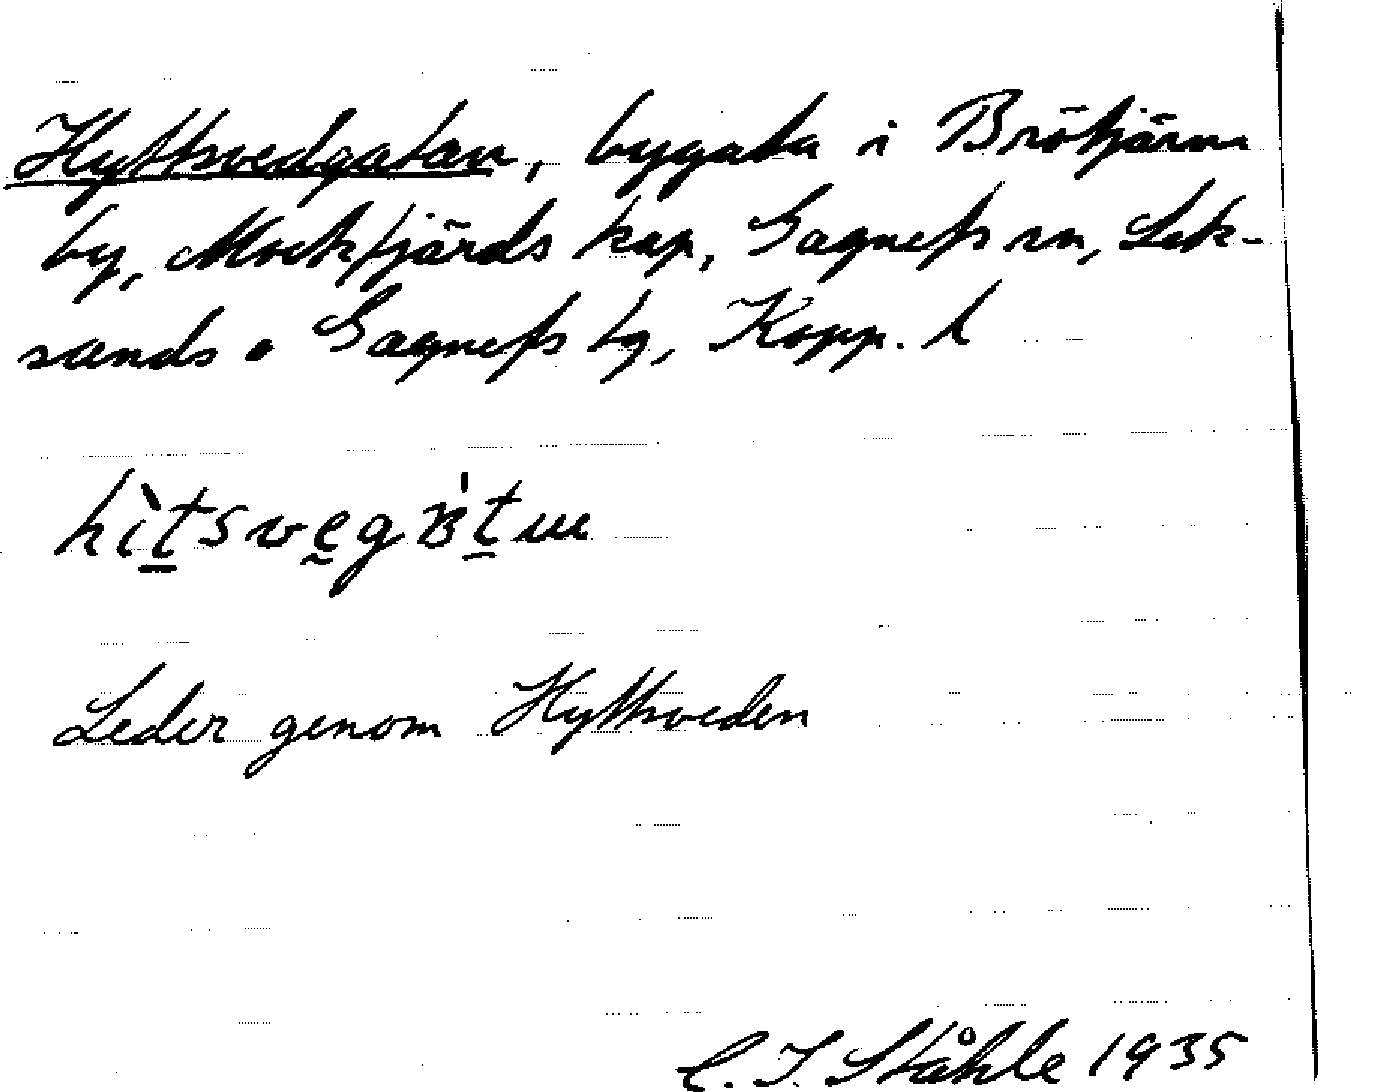 Hyttsvedgatan, bygata i Brötjärna
by, Mockfjärds kap, Gagnefs sn, Lek-
sands o Gagnefs tg, Kopp. l
Leder genom Hyttsveden
C. I. Ståhle 1935